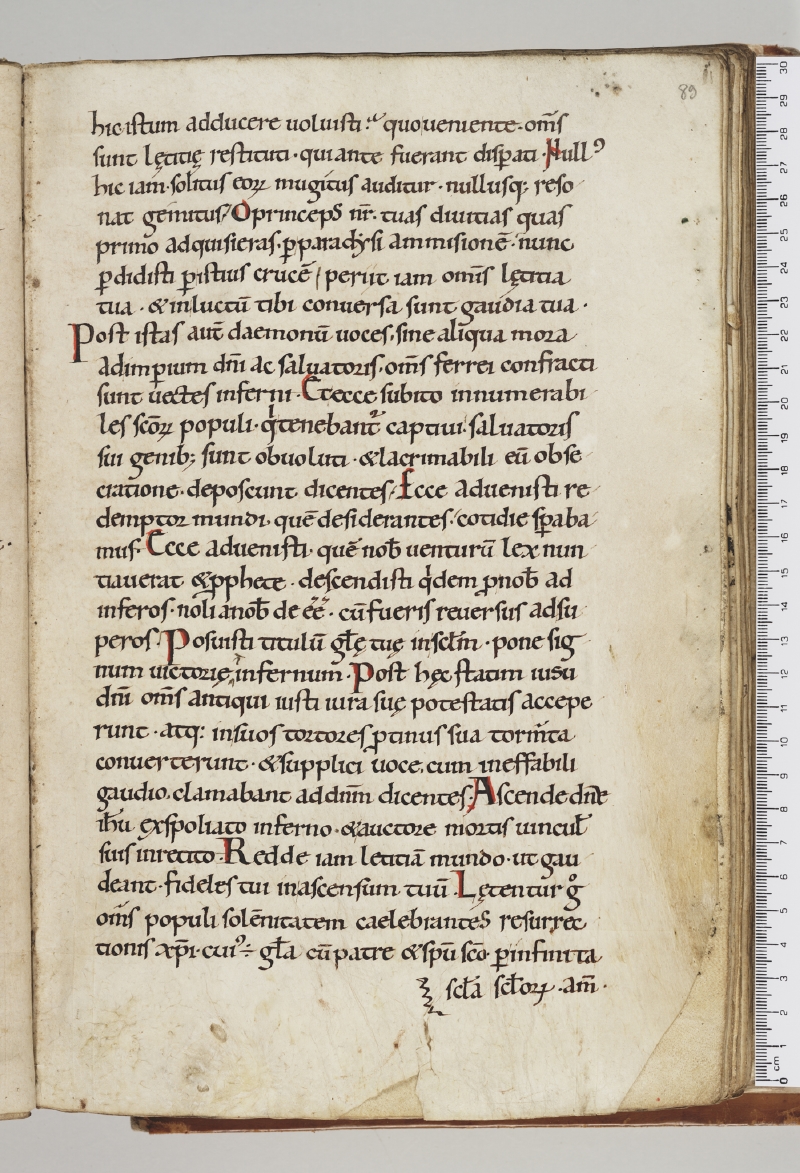 89
hic istum adducere uoluisti? quo ueniente · om̄s
sunt lętitię restituti · qui ante fuerant disꝑati · Nullꝰ
hic iam · solitus eoꝝ mugitus auditur · nullusq; reso
nat gemitus? O princeps nr̄ · tuas diuitias quas
primo adquisieras · ꝑ paradẏsi ammisionē · nunc
ꝑdidisti ꝑ istius crucē / perijt iam om̄s lętitia
tua · & in luctū tibi conuersa sunt gaudia tua ·
Post istas aut̄ daemonū uoces · sine aliqua mora
ad imꝑium dn̄i ac saluatoris · om̄s ferrei confracti
sunt uectes inferni · Et ecce subito innumerabi
les sc̄oꝝ populi · q tenebant᷑ captiui · saluatoris
sui genib; sunt obuoluti · & lacrimabili eū obse
cratione · deposcunt dicentes · Ecce aduenisti re
demptor mundi · quē desiderantes · cotidie sꝑaba
mus · Ecce aduenisti · quē nob̄ uenturū lex nun
tiauerat & ꝓphete · descendisti qͥdem ꝓ nob̄ ad
inferos · noli a nob̄ de eē · cū fueris reuersus ad su
peros · Posuisti titulū gl̄ę tuę in sc̄lm̄ · pone sig
num uictorię in infernum · Post hęc statim iussu
dn̄i om̄s antiqui iusti iura suę potestatis accepe
runt · atq; in suos tortores ꝓtinus sua torm̄ta
conuerterunt · & supplici uoce, cum ineffabili
gaudio, clamabant ad dn̄m dicentes · Ascende dn̄e
ih̄u exspoliato inferno · & auctore mortis uincul̄
suis inretito · Redde iam letitiā mundo · ut gau
deant · fideles tui in ascensum tuū · Lętentur gͦ
om̄s populi solēnitatem caelebrantes resurrec
tionis xp̄i · cuiꝰ ÷ gl̄a cū patre & sp̄u sc̄o · ꝑ infinita
sc̄la sc̄loꝝ · am̄ ·
30
29
28
27
26
25
24
23
22
21
20
19
18
17
16
15
14
13
12
11
10
9
8
7
6
5
4
3
2
1
cm
0